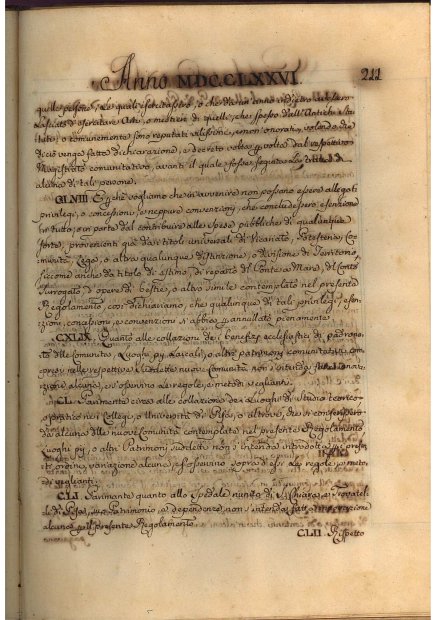 Anno MDCCLXXVI. 211
quelle persone, le quali esercitassero, o che da un anno indietro avessero
lasciato d'esercitare Arti, o mestieri di quelli, che spesso dall'Antichi
o comunemente sono reputati vilissimi, e non onorati, volendo che
di ciò venga fatta dichiarazione, e decreto volta per volta dal respettivo
Magistrato comunitativo, avanti il quale fosse
alcuna di tali persone.
CXLVIII E che vogliamo che in avvenire non possono essere allegati
privilegi, o concessioni, e neppure convenzioni, che concludessero esenzione
in tutto, o in parte dal contribuire alle spese pubbliche di qualunque
sorte, provenienti que da titoli universali di Vicariato, Potesteria, Co-
munità, Lega, o altra qualunque distinzione, o divisione di Territorio,
siccome anche da titolo di estimo, di reparto del Ponte a Mare, del Conto
Surrogato d'opere di bestie, o altro simile contemplato nel presente
Regolamento, così dichiariamo, che qualunque di tali privilegi, esen-
zioni, concessioni, e convenzioni s'abbia per annullato pienamente.
CXLIX. Quanto alle collazioni de i benefizi ecclesiastici di padrona-
to delle Comunità, Luoghi pij Laicali, o altri patrimonj comunitativi com-
presi nelle respettive suddette nuove Comunità non s'intenda fatta inno-
vazione alcuna, e s'osservino le regole, e metodi veglianti.
CL. Parimente circa alle collazione dei Luoghi di Studio teorico-
pratico nei Collegi, o Università di Pisa, o altrove, che si conferissero
da alcuna delle nuove Comunità contemplate nel presente Regolamento
Luoghi pij, o altri Patrimonj suddetti non s'intenda introdotta per presen-
ti ordini variazione alcuna, e s'osservino sopra di essi le regole, e meto-
di veglianti.
CLI. Parimente quanto allo Spedale nuovo di S. Chiara, e Trovatel-
li di Pisa, suo Patrimonio, e dependenze, non s'intenda fatta innovazione
alcuna per il presente Regolamento.
CLII. Rispetto